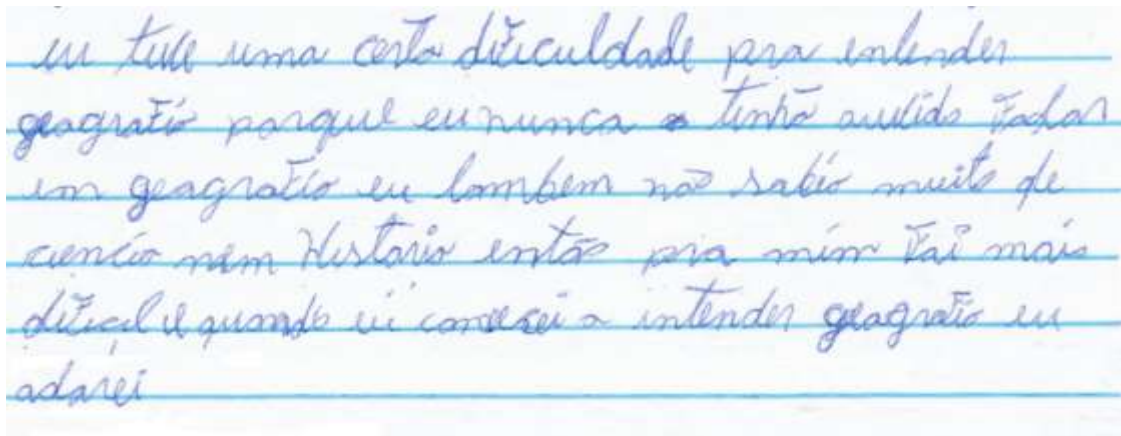 eu tive uma certa dificuldade pra entender
geografia porque eu nunca a tinha ouvido falar
em geografia eu tambem não sabia muito de
ciencia nem Historia então pra mim foi mais
dificil e quando eu comecei a intender geografia eu
adorei